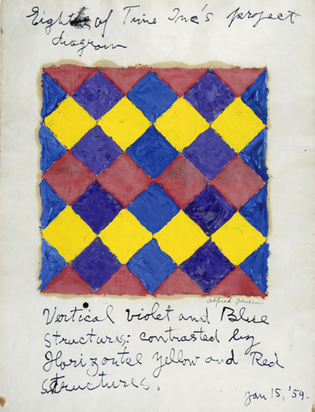 Eight of Time Inc's project
diagram
alfred jensen
Vertical Violet and Blue
structures: contrasted by
Horizontal Yellow and Red
structures.
Jan 15, '59.